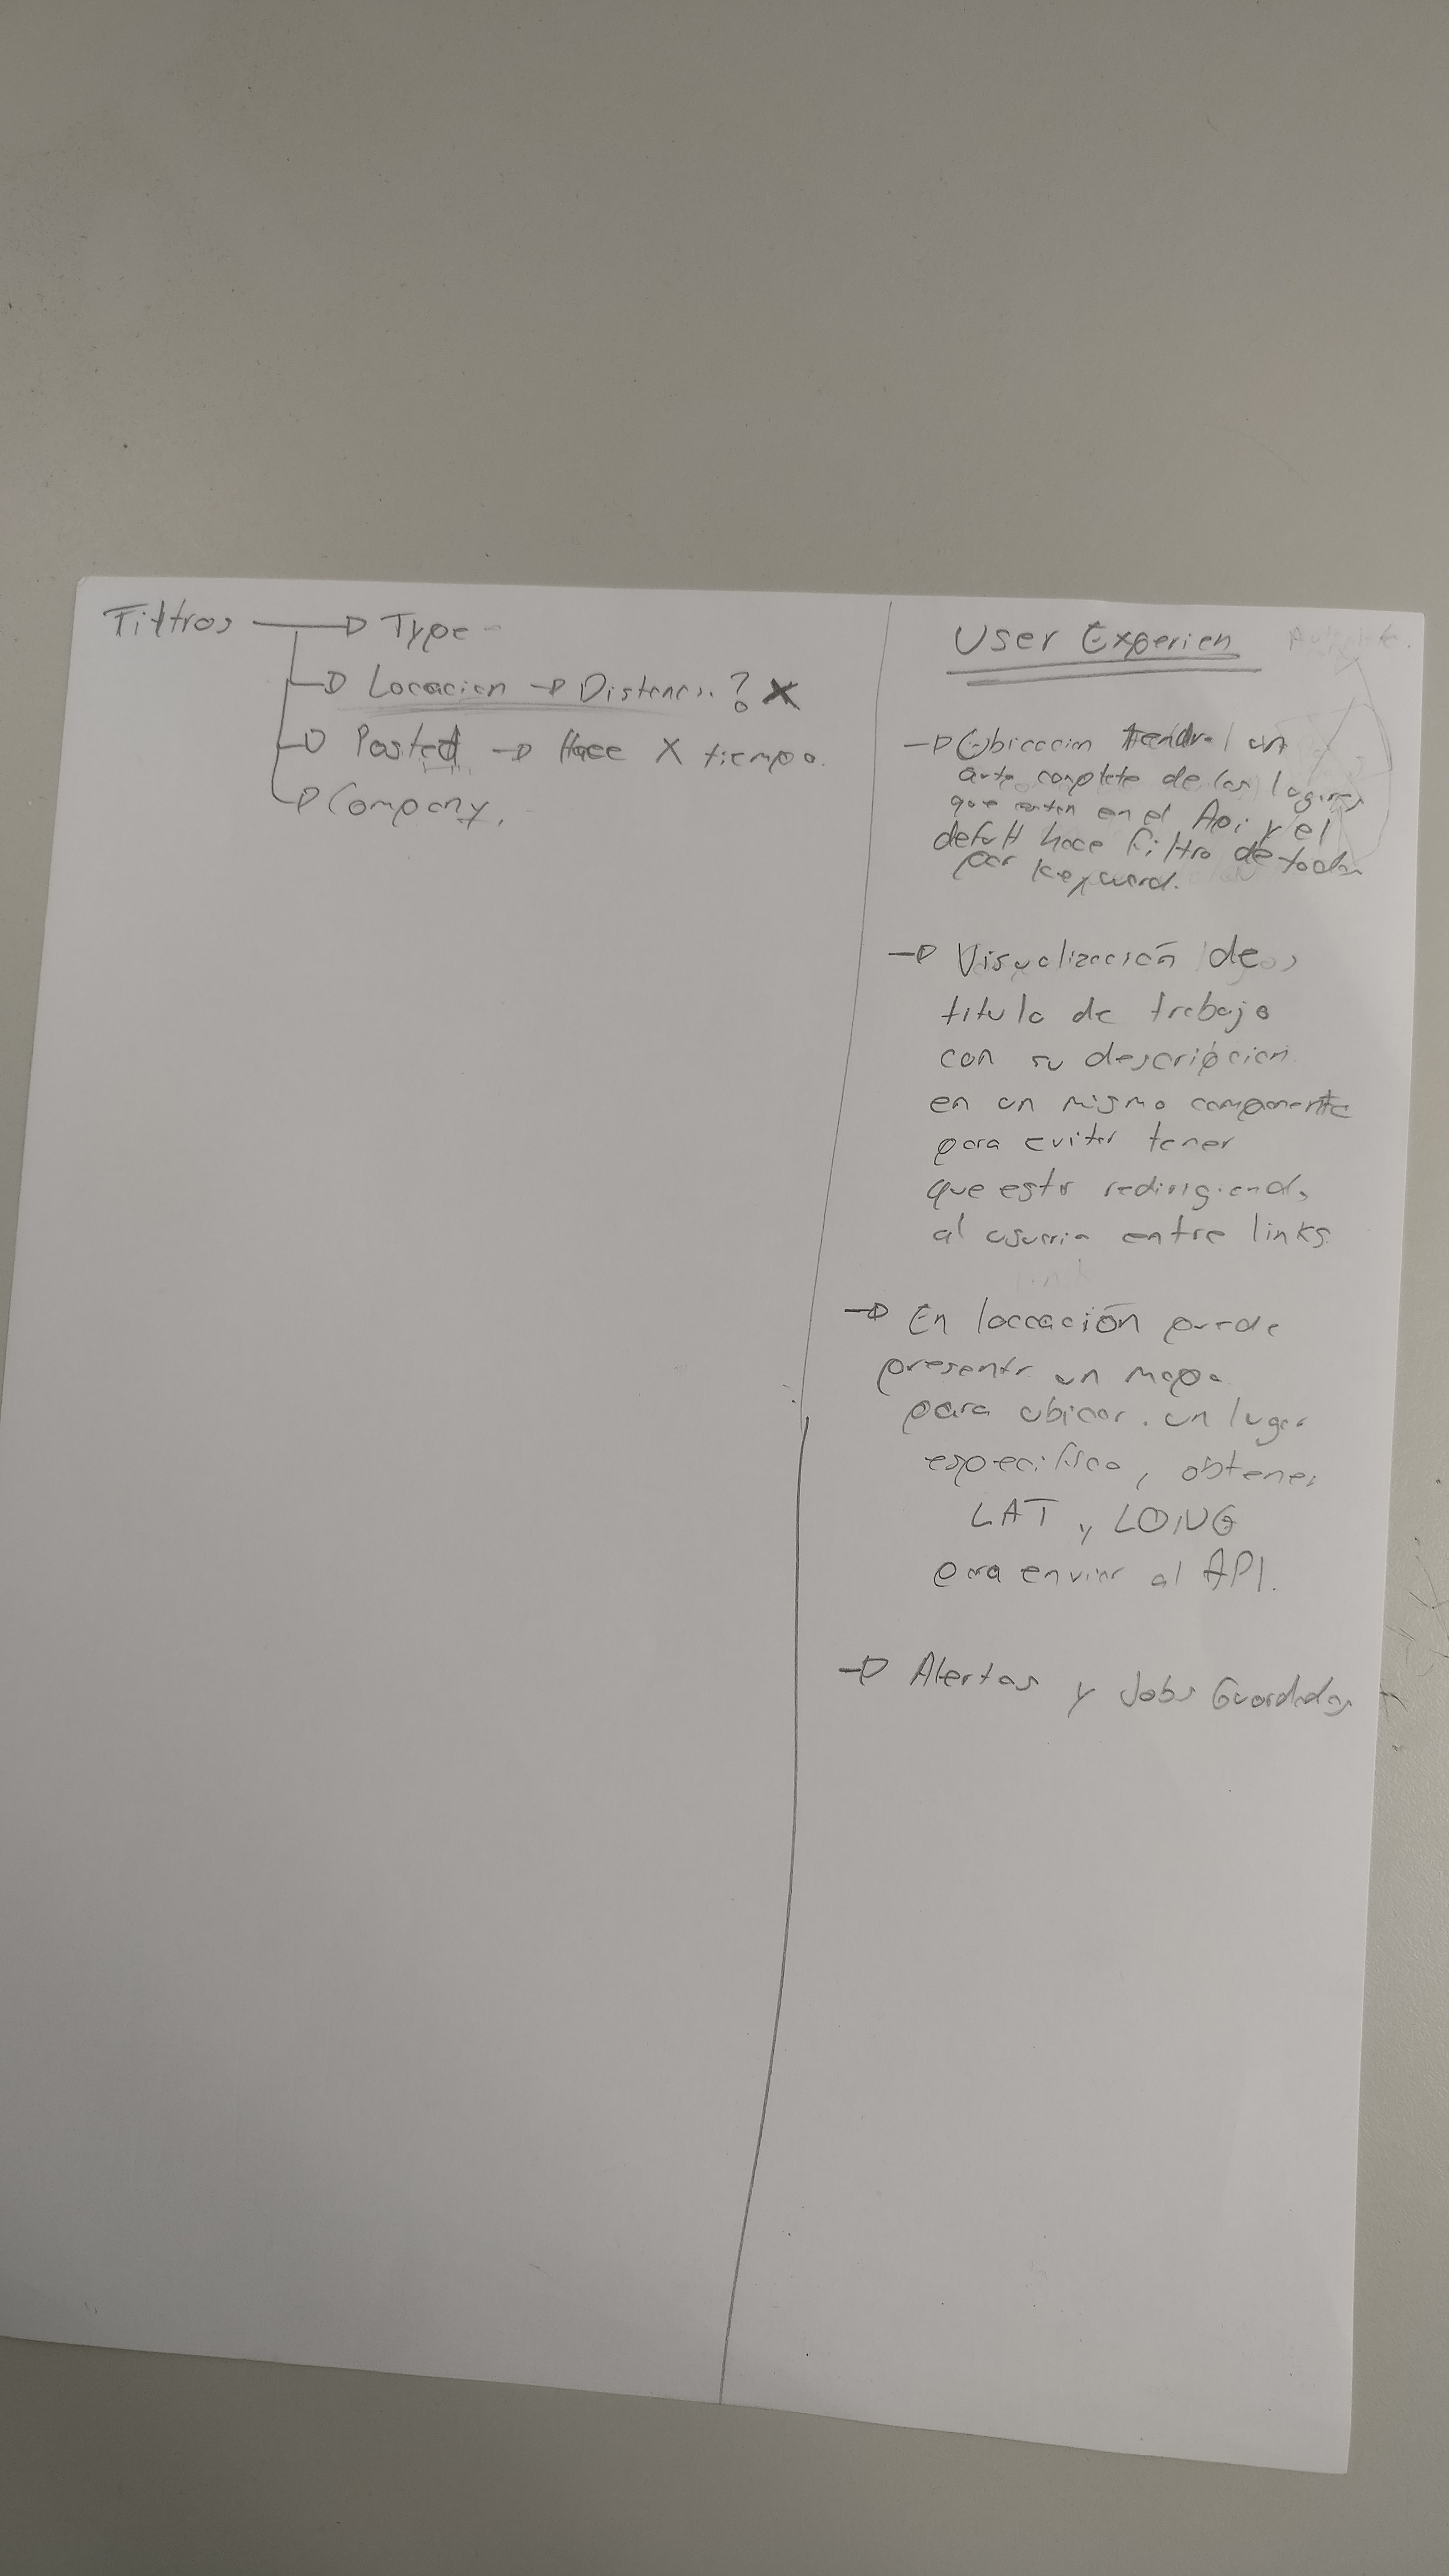 Filtros → Type
→ Locacion → Distanc. ? X
→ Posted → Hace X tiempo.
→ Company.
User Experien
→ Ubicacion tendra un
auto complete de los lugares
que en el Api y el
default hace filtro de todos
por keyword.
→ Visualización de
titulo de trabajo
con su descripcion
en un mismo componente
para evitar tener
que estar redirigiendo
al usuario entre links
→ En locación puede
presentar un mapa
para ubicar un lugar
especifico, obtener
LAT y LONG
para enviar al API.
→ Alertas y Jobs Guardados